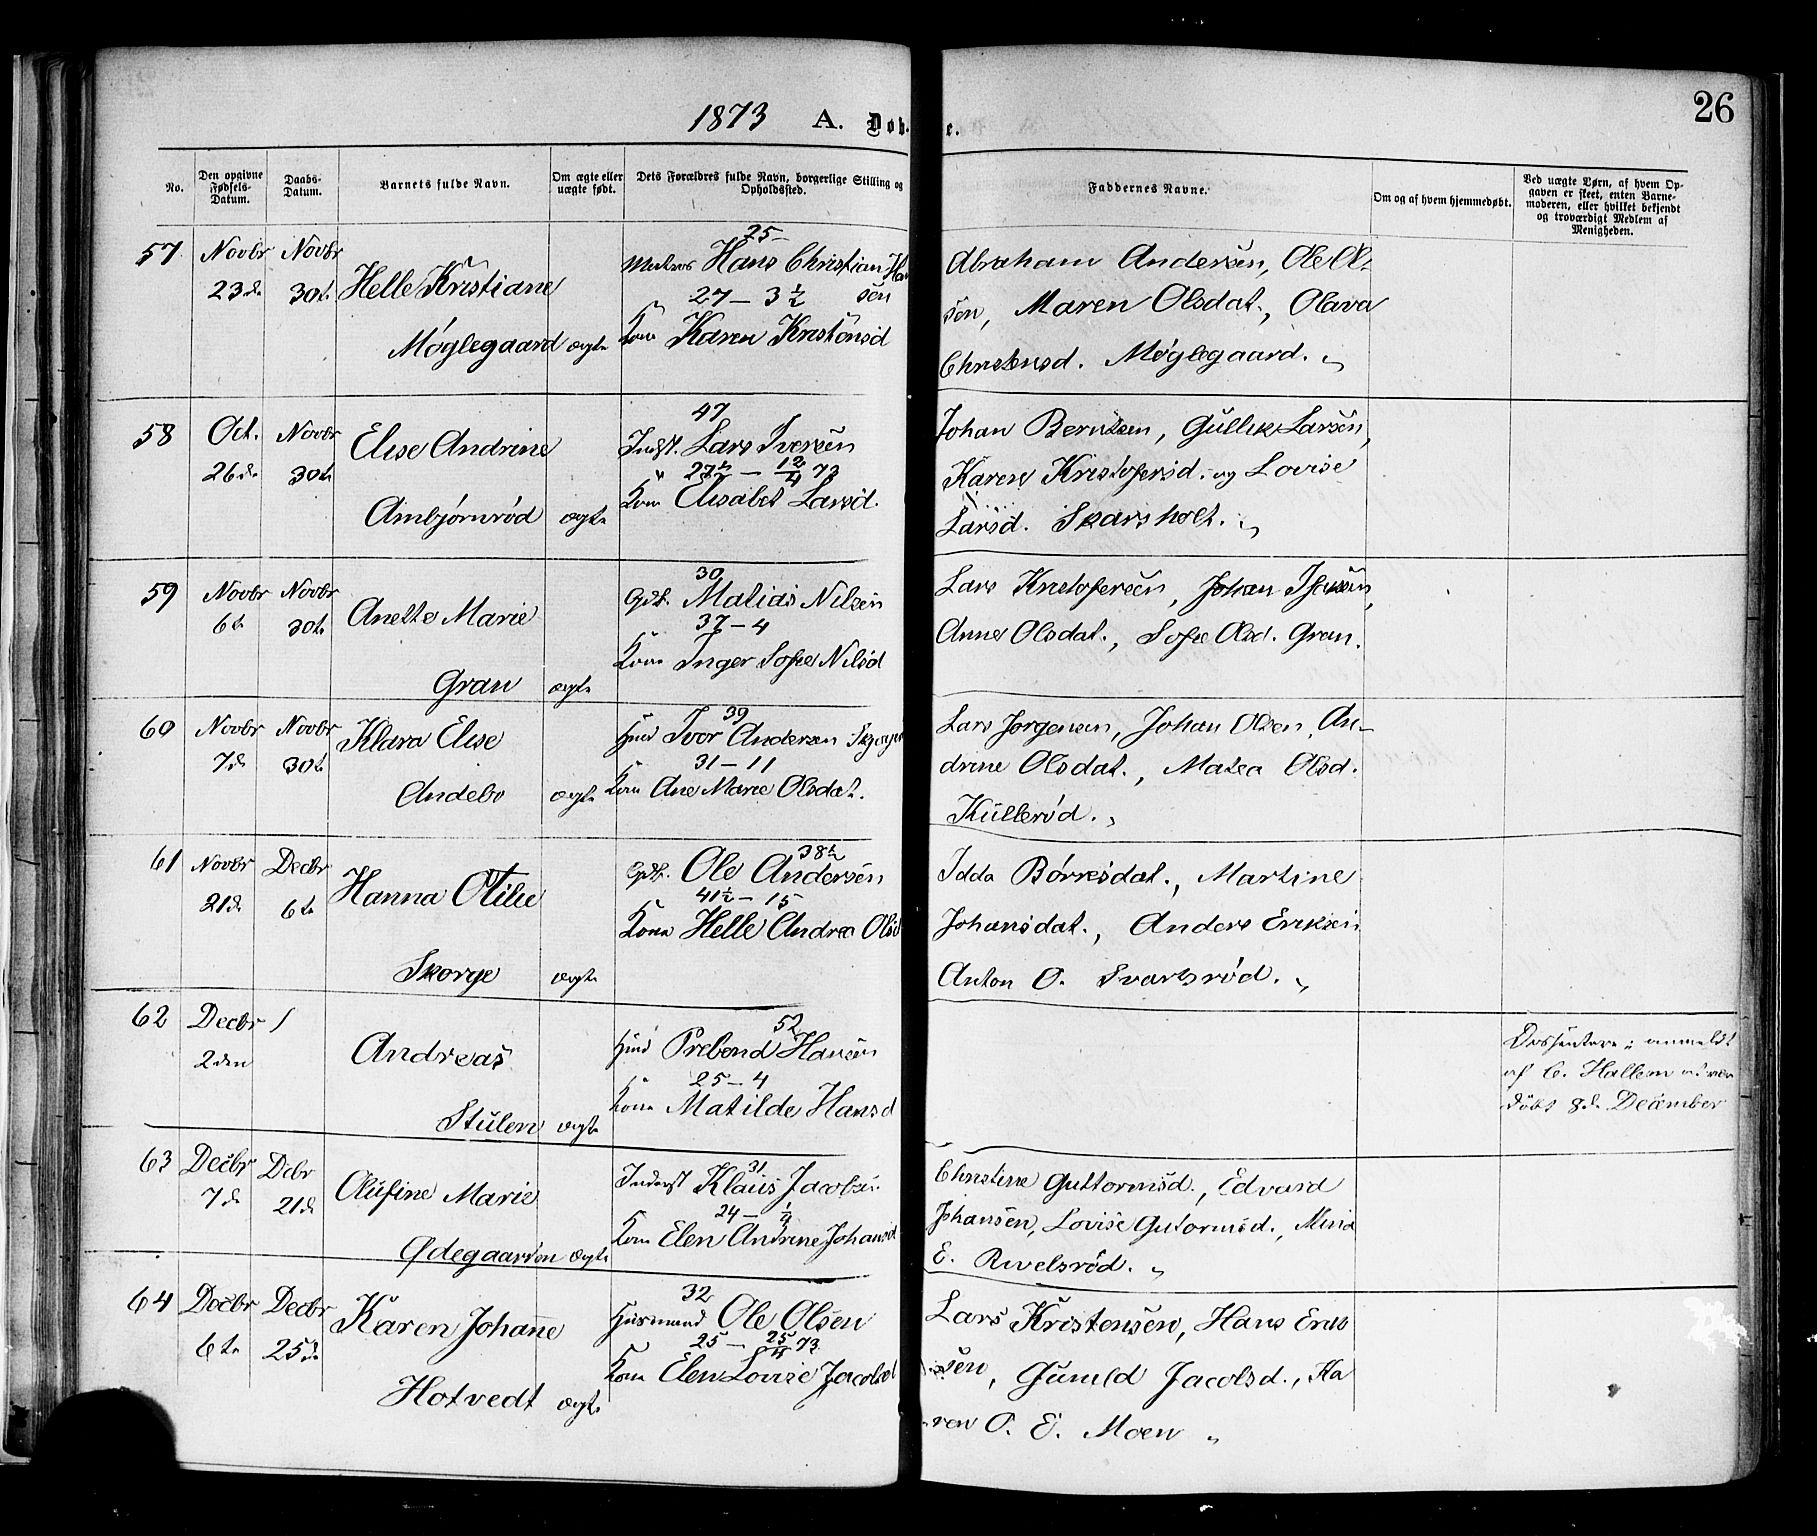 26
1873 A. Døb e.
No.
Den opgivne Fødsels-Datum.
Daabs-Datum.
Barnets fulde Navn.
Om ægte eller uægte født.
Dets Forældres fulde Navn, borgerlige Stilling og Opholdssted.
Faddernes Navne.
Om og af hvem hjemmedøbt.
Ved uægte Børn, af hvem Opgaven er skeet, enten Barnemoderen, eller hvilket bekjendt og troværdigt Medlem af Menigheden.
57 Novbr 23de Novbr 30te
Helle Kristiane
Møglegaard ægte
25
Hans Christian Han
sen
27 - 3 1/2
Kone Karen Kristensd
Abraham Andersen, Ole Ol-
sen, Maren Olsdat., Olava
Christensd. Møglegaard. „
58 Oct. 26de Novbr 30te
Elise Andrine
Ambjørnrød ægte
47
Indst. Lars Iversen
" 27 1/2 - 12/4 73
Kone Elisabet Larsd.
Johan Berntsen, Gullik Larsen,
Karen Kristofersd. og Lovise
Larsd. Skarsholt. „
59 Novbr 6te Novbr 30te
Anette Marie
Gran ægte
30
Gdb. Matias Nilsen
37 - 4
Kone Inger Sofie Nilsd
Lars Kristofersen, Johan Isaksen,
Anne Olsdat., Sofie Olsd. Gran.
60 Novbr 7de Novbr 30te
Klara Elise
Andebo ægte
39
Hmd Ivor Andersen
31 - 11
Kone Ane Marie Olsdat.
Lars Jørgensen, Johan Olsen, An-
drine Olsdat., Matea Olsd.
Kullerød. „
61 Novbr 21de Decbr 6te
Hanna Otilie
Skorge ægte
38 1/2
Gdb. Ole Andersen
41 1/2 - 15
Kone Helle Andrea Olsd
Idda Børresdat., Martine
Johansdat., Anders Eriksen
Anton O. Svartsrød. „
62 Decbr 2den /
Andreas
Stulen ægte
52
Hmd Prebend Hansen
25 - 4
Kone Matilde Hansd
Dissentere; anmeldt
af C. Hallem at være
døbt 8de December
63 Decbr 7de Dcbr 21de
Olufine Marie
Ødegaarden ægte
31
Inderst Klaus Jacobs.
24 - 1/11
Kone Elen Andrine Johansd
Christine Guttormsd., Edvard
Johansen, Lovise Gutormsd., Mina
E. Rivelsrød. „
64 Decbr 6te Decbr 25de
Karen Johanne
Hotvedt ægte
32
Husmand Ole Olsen
25 - 25/4 73
Kone Elen Lovise Jacobsd
Lars Kristensen, Hans Erik
sen, Gunild Jacobsd., Ka
ren O. E. Moen „